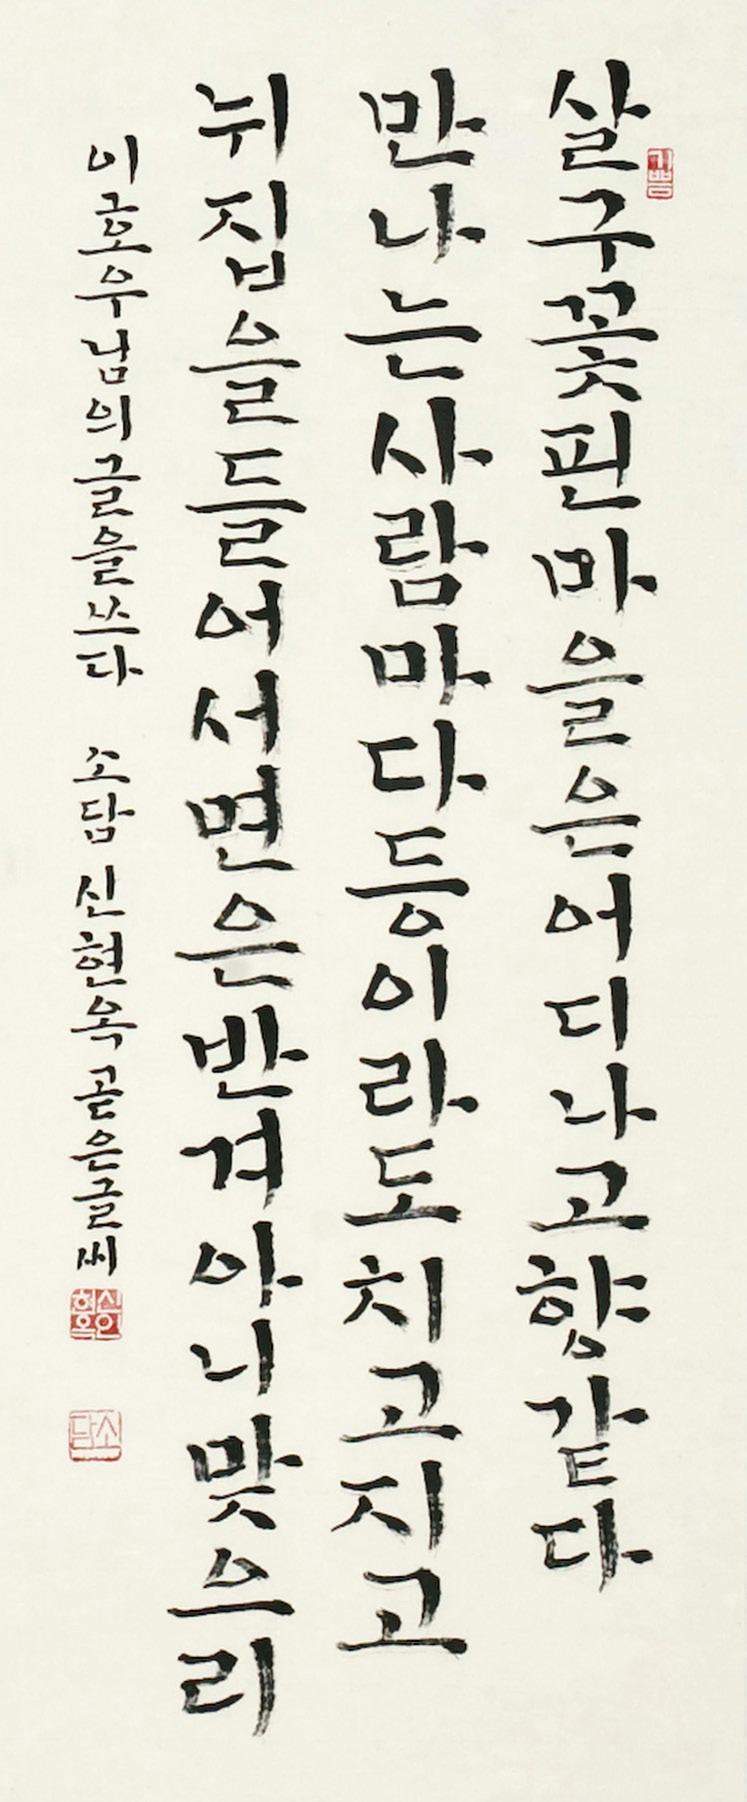 살구꽃핀마을은어디나고향같다
만나는사람마다등이라도치고지고
뉘집을들어서면은반겨아니맞으리
이호우님의글을쓰다 소담 신현옥 곧은글씨
신현옥
소담